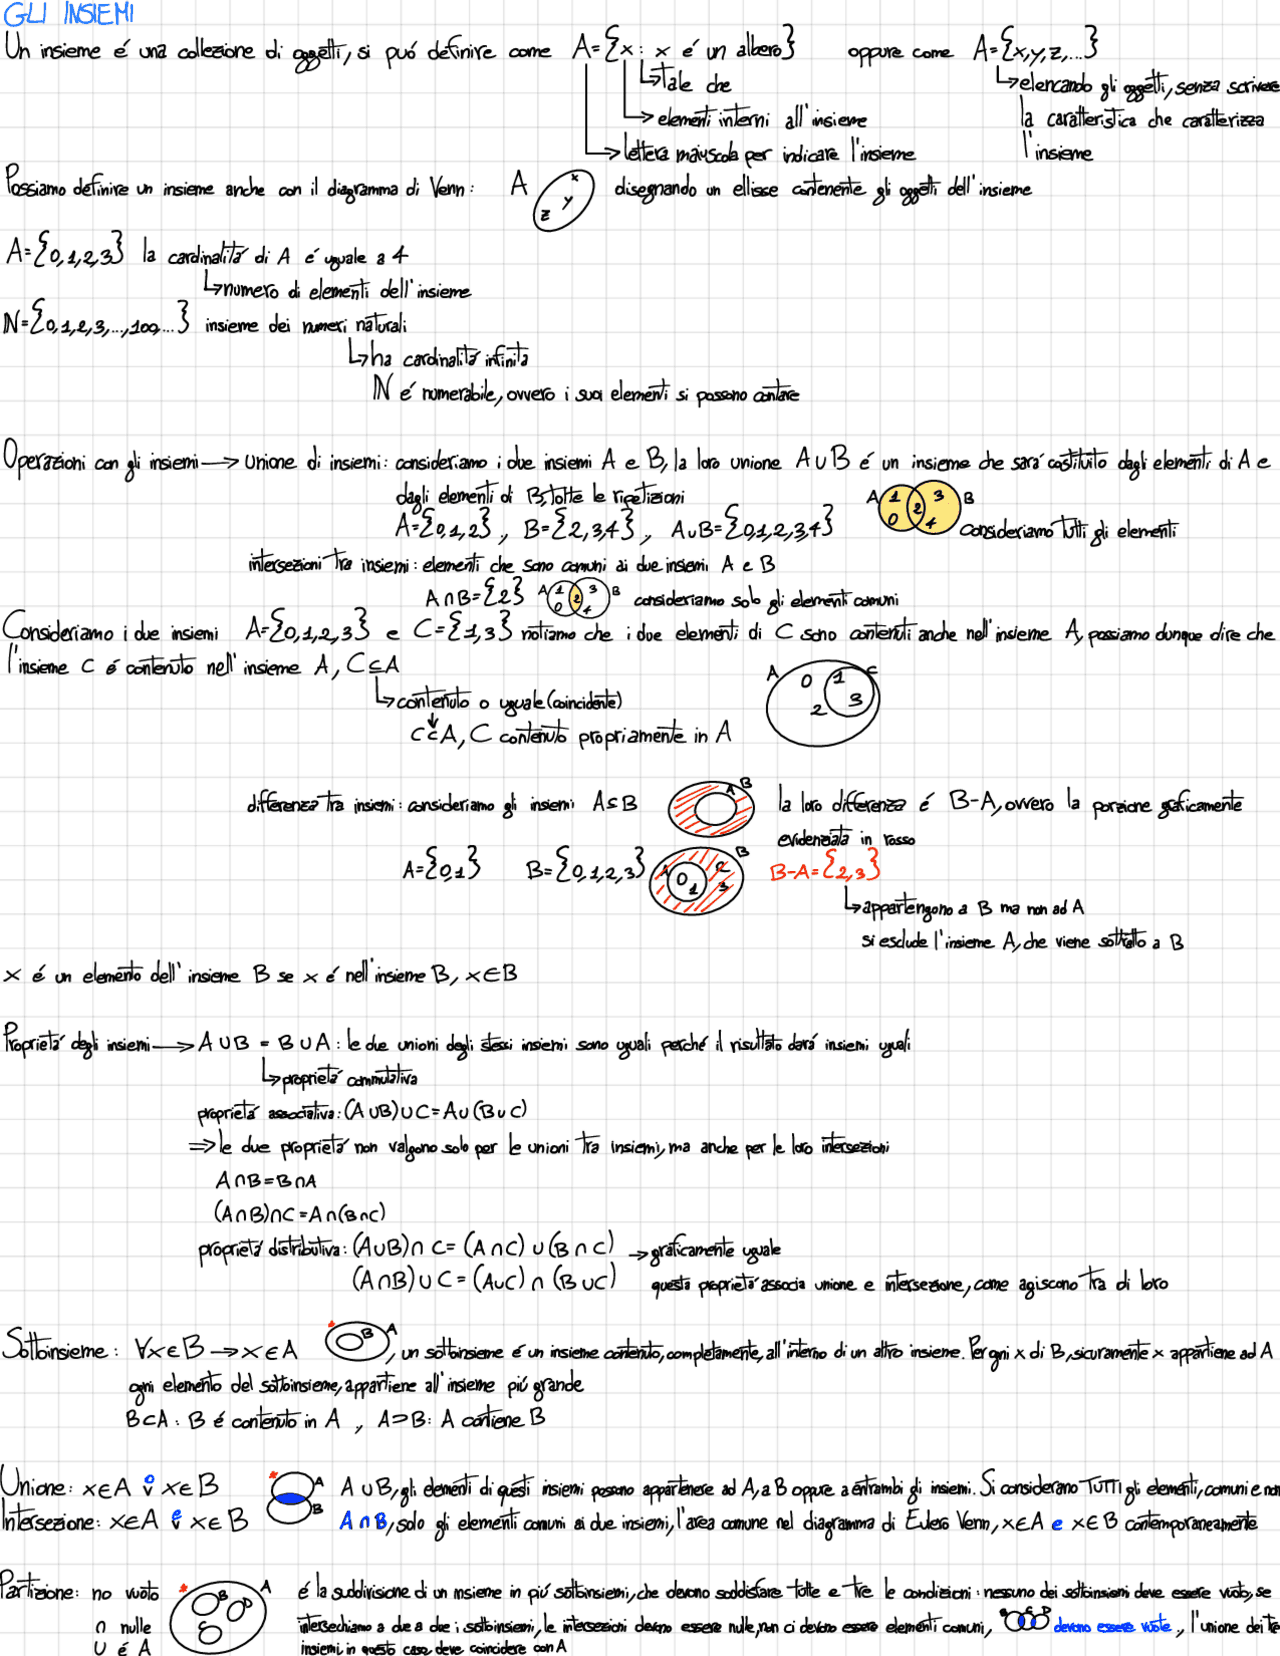 GLI INSIEMI
Un insieme é una collezione di oggetti, si puó definire come A={x: x é un albero} oppure come A={x,y,z,...}
↳tale che ↳elencando gli oggetti, senza scrivere
↳elementi interni all'insieme la caratteristica che caratterizza
↳lettera maiuscola per indicare l'insieme l'insieme
Possiamo definire un insieme anche con il diagramma di Venn: A x y z disegnando un ellisse contenente gli oggetti dell'insieme
A={0,1,2,3} la cardinalitá di A é uguale a 4
↳numero di elementi dell'insieme
ℕ={0,1,2,3,...,100,...} insieme dei numeri naturali
↳ha cardinalitá infinita
ℕ é numerabile, ovvero i suoi elementi si possono contare
Operazioni con gli insiemi → Unione di insiemi: consideriamo i due insiemi A e B, la loro unione A∪B é un insieme che sará costituito dagli elementi di A e
dagli elementi di B, tolte le ripetizioni
A={0,1,2}, B={2,3,4}, A∪B={0,1,2,3,4} A 1 0 2 3 4 B consideriamo tutti gli elementi
intersezioni tra insiemi: elementi che sono comuni ai due insiemi A e B
A∩B={2} A 1 0 2 3 4 B consideriamo solo gli elementi comuni
Consideriamo i due insiemi A={0,1,2,3} e C={1,3} notiamo che i due elementi di C sono contenuti anche nell'insieme A, possiamo dunque dire che
l'insieme C é contenuto nell'insieme A, C⊆A A 0 1 C 2 3
↳contenuto o uguale (coincidente)
C⊂A, C contenuto propriamente in A
differenza tra insiemi: consideriamo gli insiemi A⊆B A B la loro differenza é B-A, ovvero la porzione graficamente
evidenziata in rosso
A={0,1} B={0,1,2,3} A 0 1 2 3 B B-A={2,3}
↳appartengono a B ma non ad A
si esclude l'insieme A, che viene sottratto a B
x é un elemento dell'insieme B se x é nell'insieme B, x∈B
Proprietá degli insiemi → A∪B = B∪A: le due unioni degli stessi insiemi sono uguali perché il risultato dará insiemi uguali
↳proprietá commutativa
proprietá associativa: (A∪B)∪C=A∪(B∪C)
⇒le due proprietá non valgono solo per le unioni tra insiemi, ma anche per le loro intersezioni
A∩B=B∩A
(A∩B)∩C=A∩(B∩C)
proprietá distributiva: (A∪B)∩C=(A∩C)∪(B∩C) →graficamente uguale
(A∩B)∪C=(A∪C)∩(B∪C) questa proprietá associa unione e intersezione, come agiscono tra di loro
Sottoinsieme: ∀x∈B→x∈A * B A, un sottoinsieme é un insieme contenuto, completamente, all'interno di un altro insieme. Per ogni x di B, sicuramente x appartiene ad A
ogni elemento del sottoinsieme, appartiene all'insieme piú grande
B⊂A: B é contenuto in A, A⊃B: A contiene B
Unione: x∈A o ∨ x∈B * A A∪B, gli elementi di questi insiemi possono appartenere ad A, a B oppure a entrambi gli insiemi. Si considerano TUTTI gli elementi, comuni e non
Intersezione: x∈A e ∨ x∈B B A∩B, solo gli elementi comuni ai due insiemi, l'area comune nel diagramma di Eulero Venn, x∈A e x∈B contemporaneamente
Partizione: no vuoto * B D A é la suddivisione di un insieme in piú sottoinsiemi, che devono soddisfare tutte e tre le condizioni: nessuno dei sottoinsiemi deve essere vuoto, se
∩ nulle C intersechiamo a due a due i sottoinsiemi, le intersezioni devono essere nulle, non ci devono essere elementi comuni, B C D devono essere vuote, l'unione dei tre
∪ é A insiemi, in questo caso, deve coincidere con A